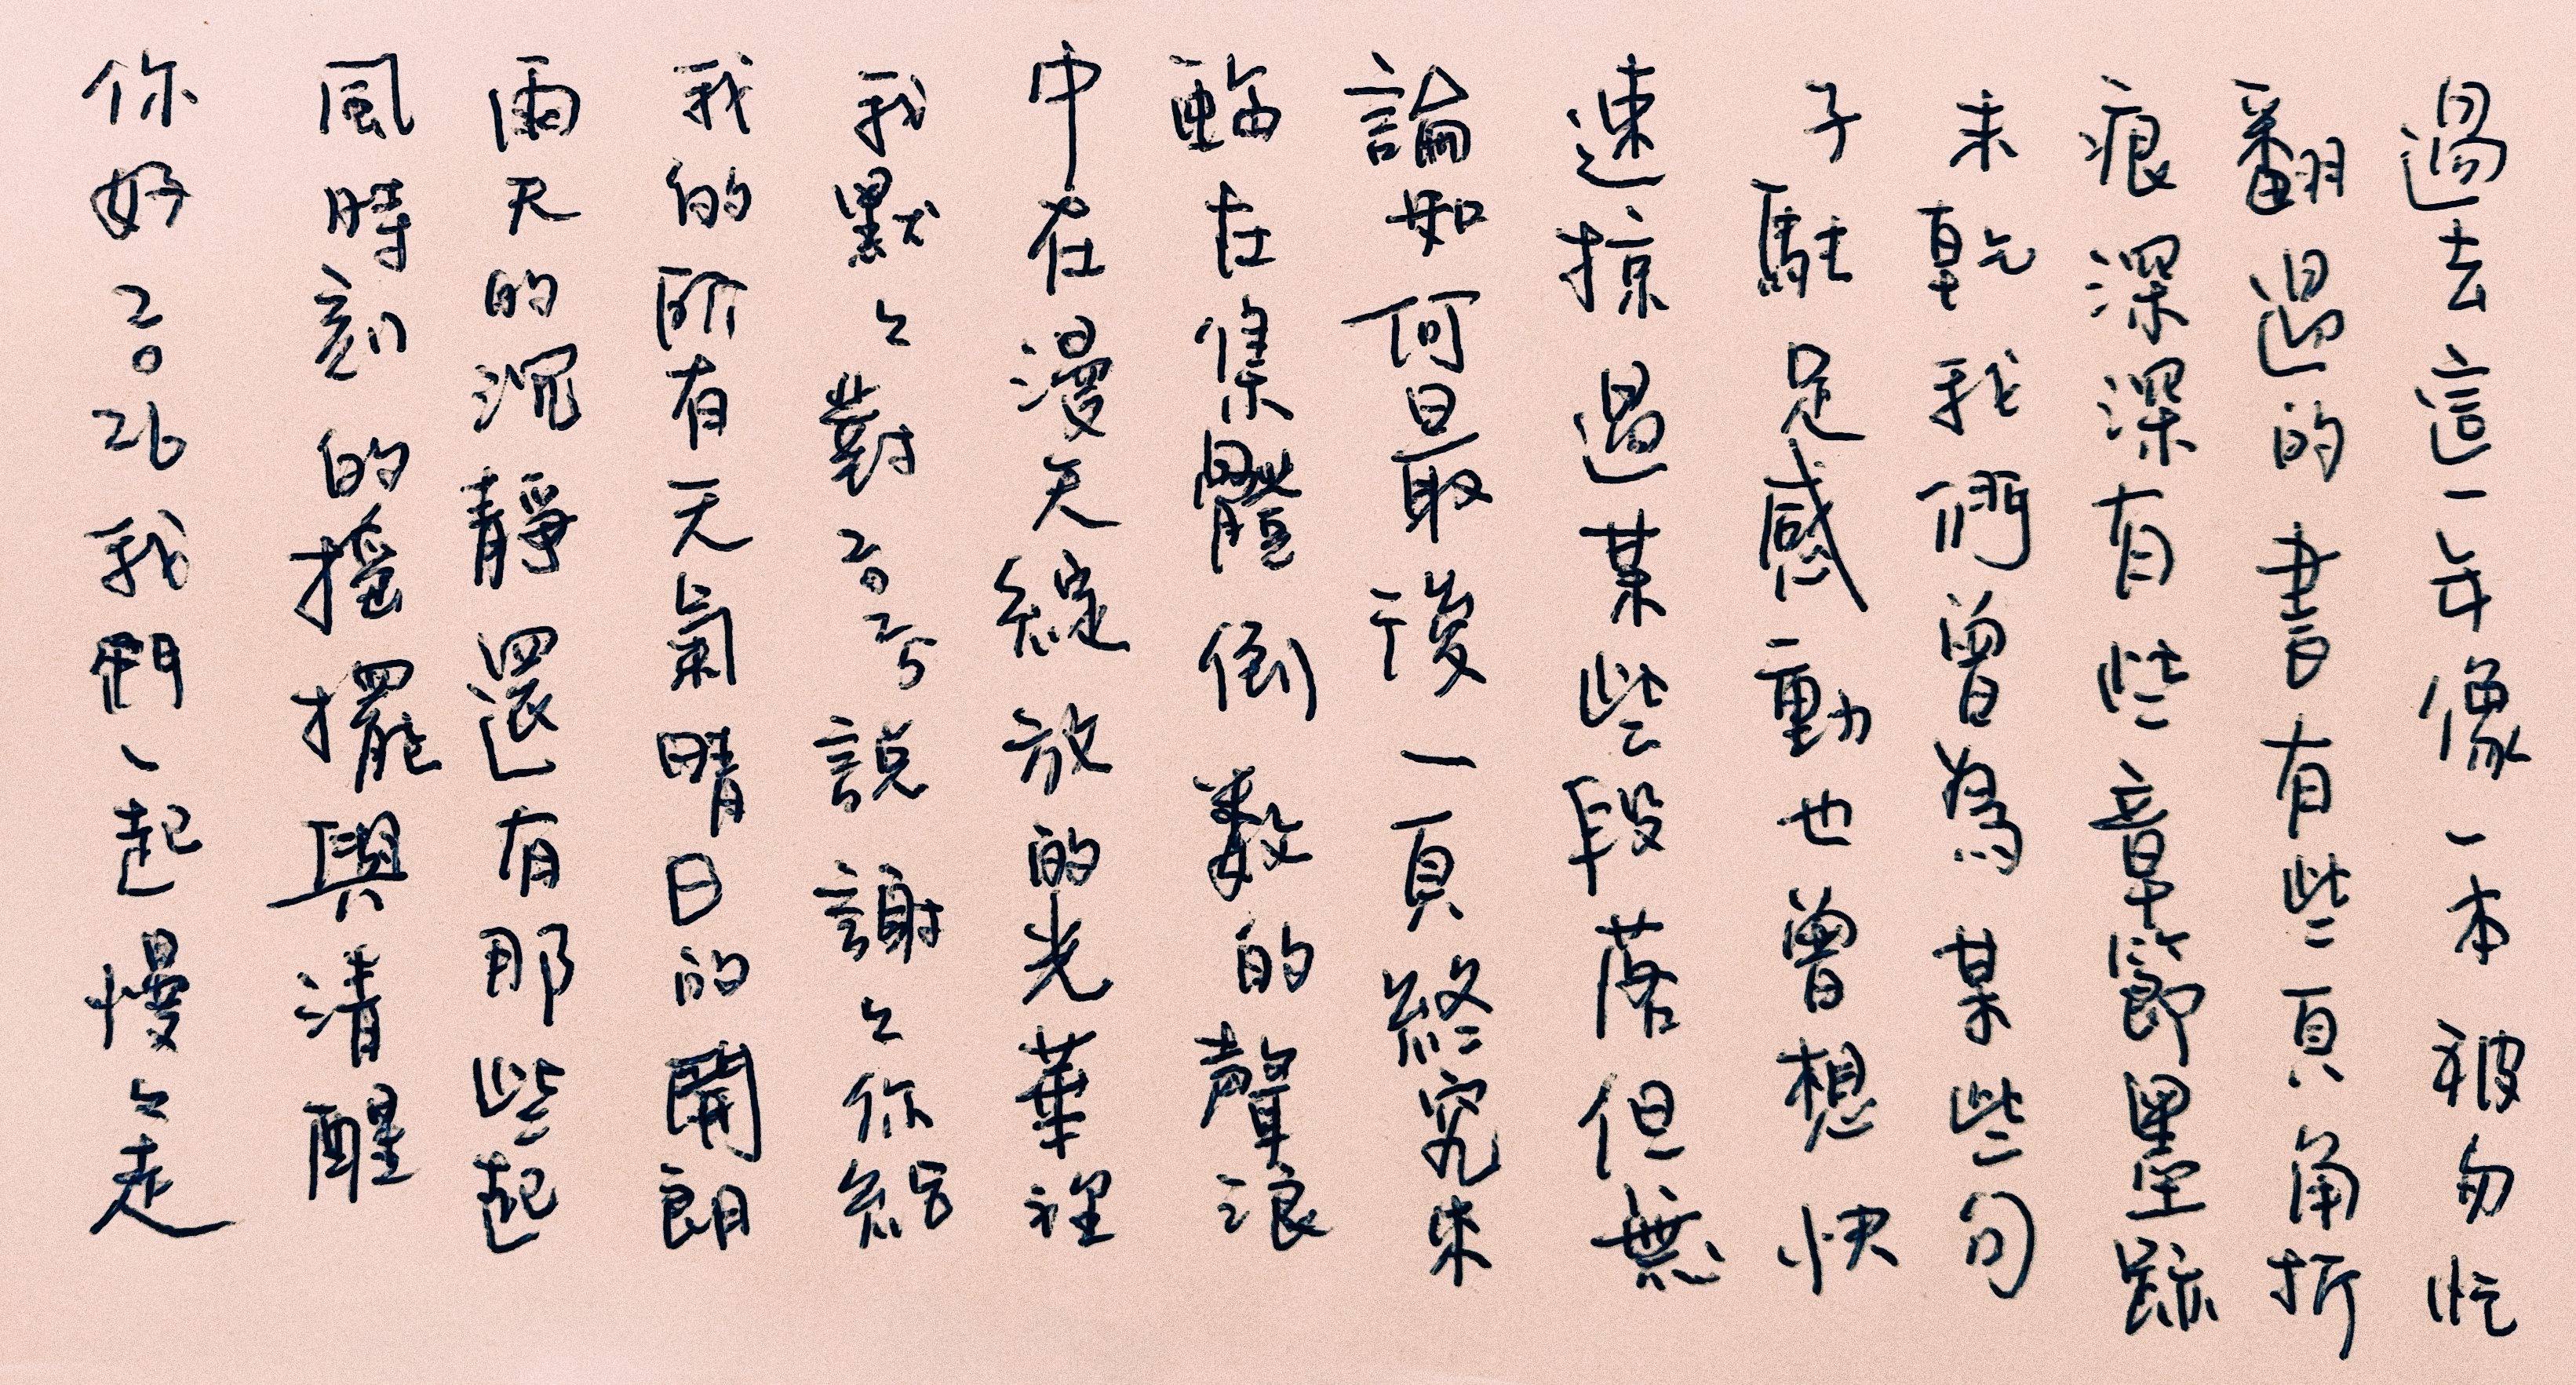 過去這一年像一本被匆忙
翻過的書有些頁角折
痕深深有些章節墨跡
未乾我們曾為某些句
子駐足感動也曾想快
速掠過某些段落但無
論如何最後一頁終究來
臨在集體倒數的聲浪
中在漫天綻放的光華裡
我默々對二〇二五說謝々你給
我的所有天氣晴日的開朗
雨天的沉靜還有那些起
風時刻的搖擺與清醒
你好二〇26我們一起慢々走